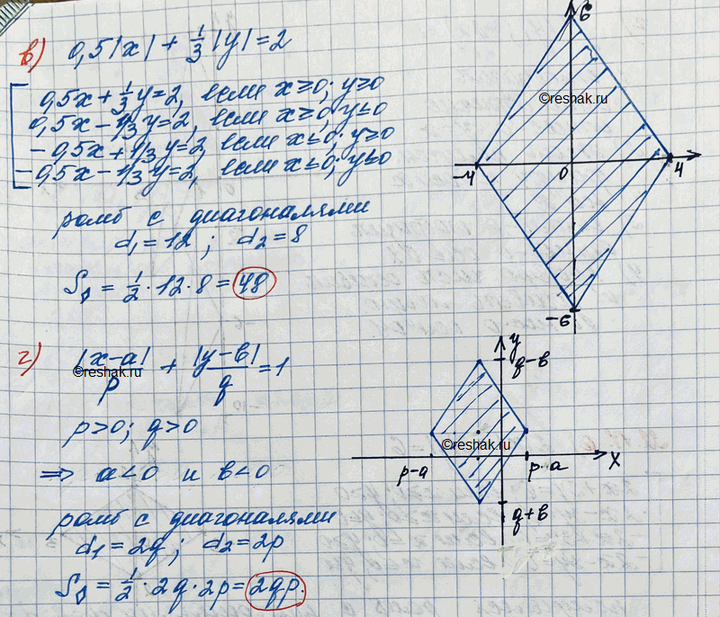 в) 0,5|x| + 1/3|y| = 2
0,5x + 1/3y = 2, если x ≥ 0; y ≥ 0
0,5x - 1/3y = 2, если x ≥ 0 y ≤ 0
-0,5x + 1/3y = 2, если x ≤ 0; y ≥ 0
-0,5x - 1/3y = 2, если x ≤ 0; y ≤ 0
ромб с диагоналями
d1 = 12; d2 = 8
S◊ = 1/2 · 12 · 8 = 48
6
©reshak.ru
-4 0 4
-6
г) |x-a|/p + |y-b|/q = 1
©reshak.ru
p > 0; q > 0
⇒ a < 0 и b < 0
ромб с диагоналями
d1 = 2q; d2 = 2p
S◊ = 1/2 · 2q · 2p = 2qp.
y
q-b
©reshak.ru
p-a p-a x
q+b